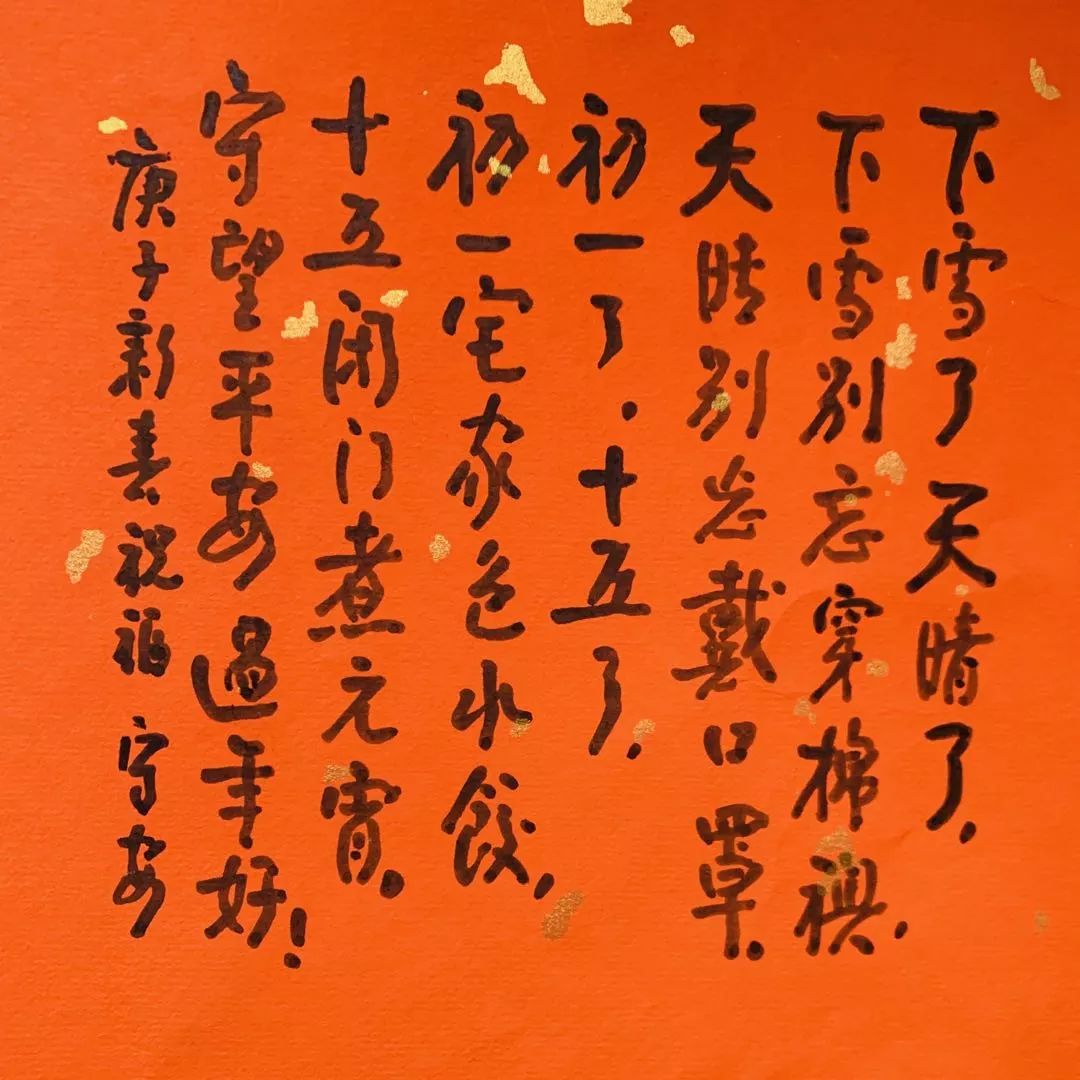 下雪了天晴了.
下雪别忘穿棉祺.
天晴别忘戴口罩.
初一了.十五了.
初一宅家包水餃,
十五闭门煮元宵.
守望平安過年好!
庚子新春祝福 守安